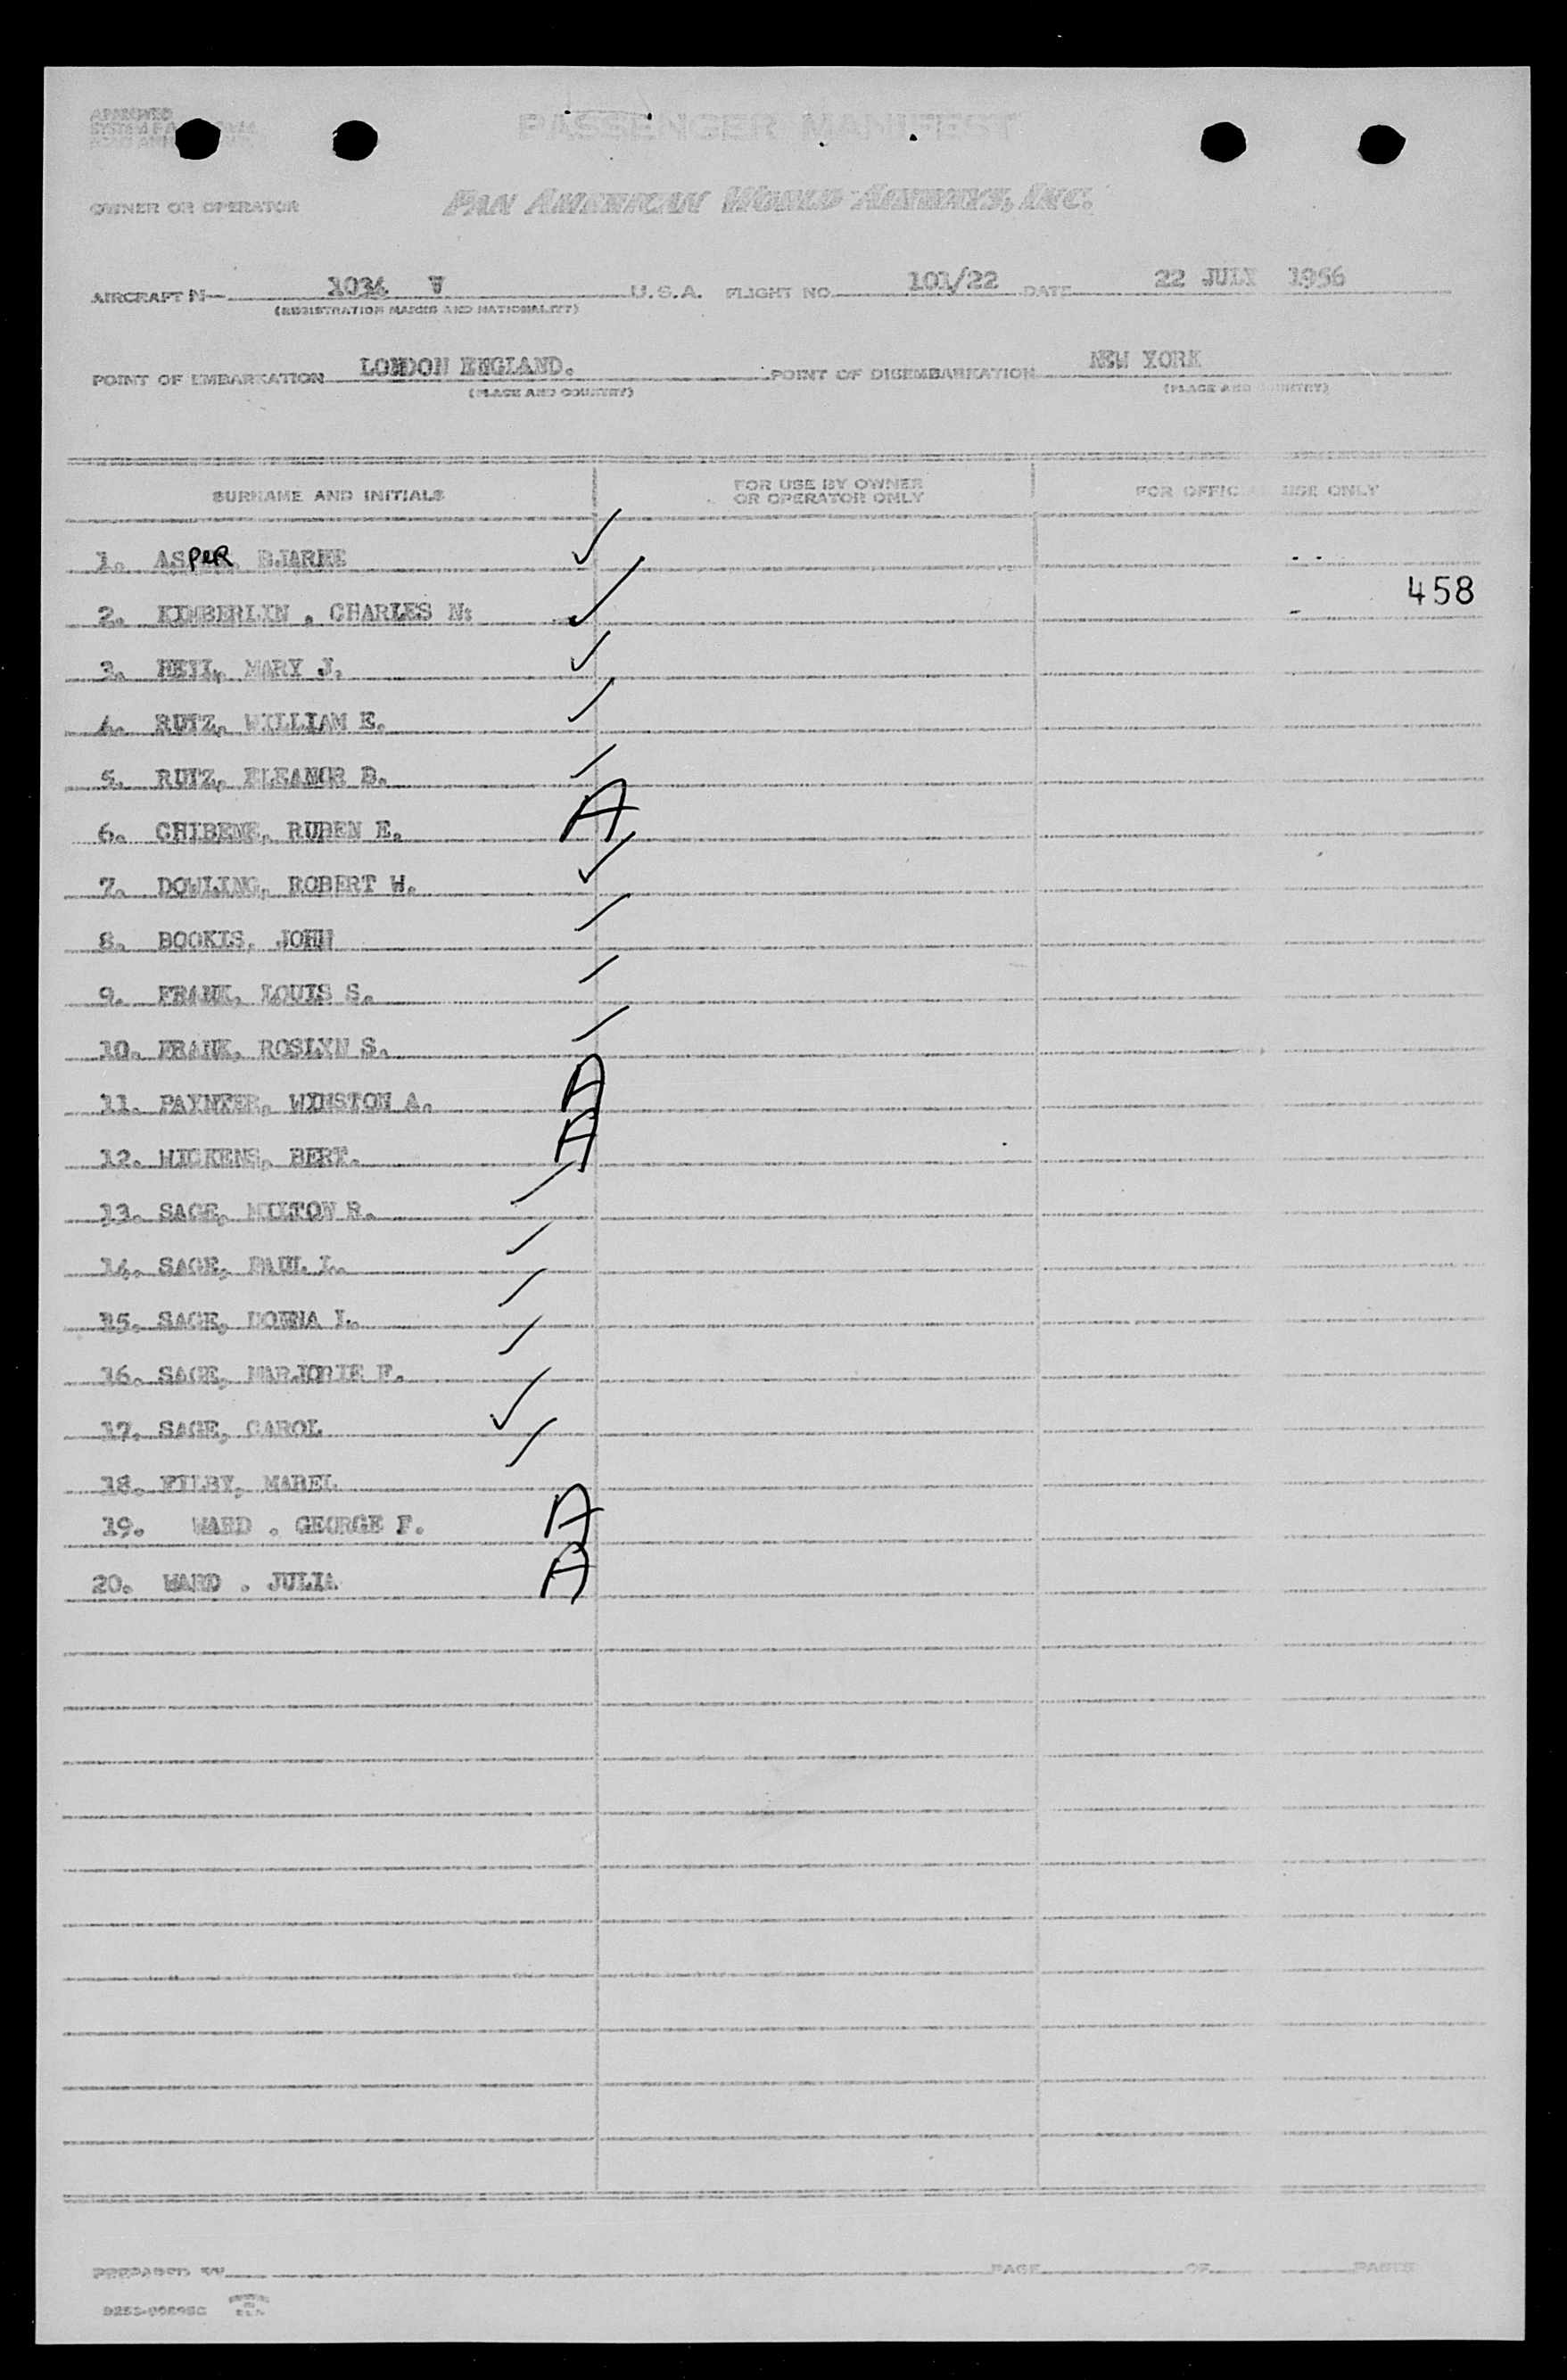 APPROVED
PASSENGER MANIFEST
OWNER OR OPERATOR PAN AMERICAN WORLD AIRWAYS, INC.
AIRCRAFT N 1034 V U.S.A. FLIGHT NO. 101/22 DATE 22 JULY 1956
(REGISTRATION MARKS AND NATIONALITY)
POINT OF EMBARKATION LONDON ENGLAND. POINT OF DISEMBARKATION NEW YORK
(PLACE AND COUNTRY) (PLACE AND COUNTRY)
SURNAME AND INITIALS FOR USE BY OWNER OR OPERATOR ONLY FOR OFFICIAL USE ONLY
1. ASPER, BJARNE ✓
458
2. KIMBERLIN , CHARLES N: ✓
3. MARY J. ✓
4. RUTZ, WILLIAM E. ✓
5. RUTZ, ELEANOR B. /
6. CHIBENE, RUBEN E. A
7. DOWLING, ROBERT W. ✓
8. BOOKIS, JOHN /
9. FRANK, LOUIS S. /
10. FRANK, ROSLYN S. /
11. PAYNTER, WINSTON A. A
12. WICKENS, BERT. A
13. SAGE, MILTON R. /
14. SAGE, PAUL L. /
15. SAGE, DONNA L. /
16. SAGE, MARJORIE F. /
17. SAGE, CAROL ✓
18. FILBY, MABEL /
19. WARD . GEORGE F. A
20. WARD . JULIA A
PREPARED BY PAGE OF PAGES